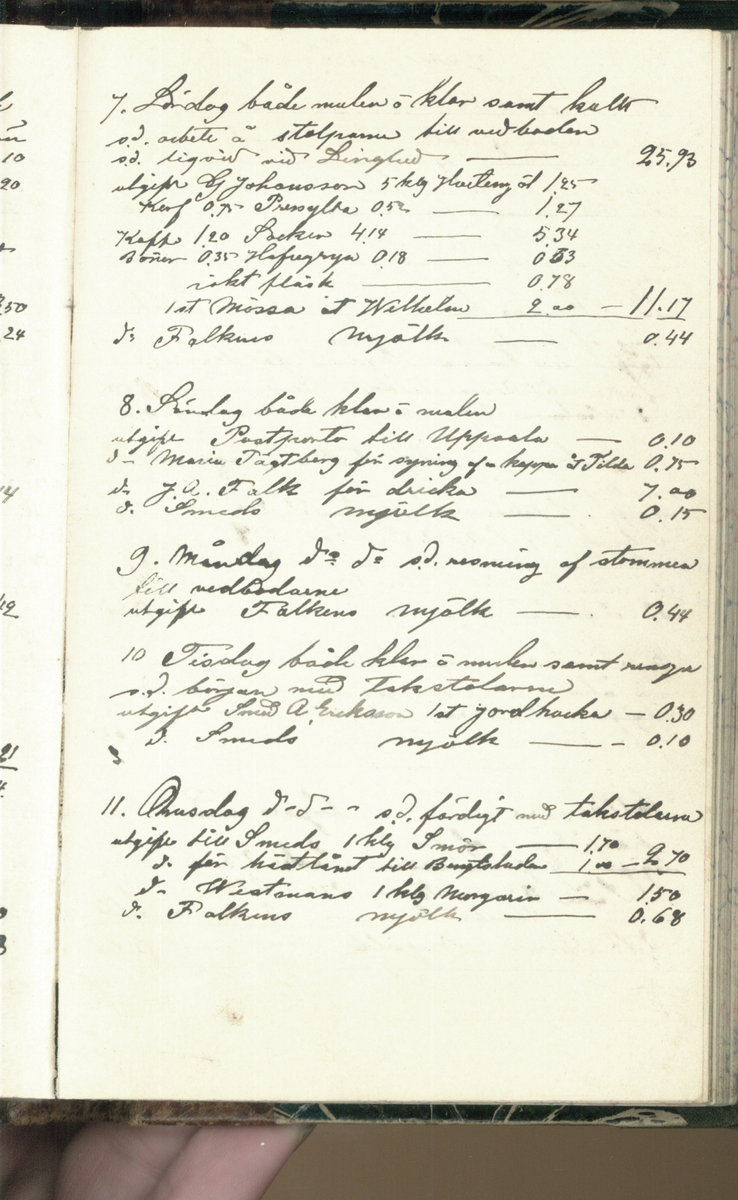 7. Lördag både mulen o klar samt kallt
s.d. arbete å stolparne till vedboden
s.d. ligvid vid Linghed — 25.93
utgift G Johansson 5 klg Hvetemjöl 1.25
Korf 0.75 Pressylta 0.52 — 1.27
Kaffe 1.20 Socker 4.14 — 5.34
Bönor 0.35 Hafregryn 0.18 — 0.53
rökt fläsk — 0.78
1 st Mössa åt Wilhelm 2.00 — 11.17
d:o Falkens mjölk — 0.44
8. Söndag både klar o mulen
utgift Postporto till Uppsala — 0.10
d:o Maria Tägtberg för syning af en kappa åt Tilda 0.75
d:o J. A. Falk för dricka — 7.00
d:o Smeds mjölk — 0.15
9. Måndag d:o d:o s.d. resning af stommen
till vedbodarne
utgift Falkens mjölk — 0.44
10 Tisdag både klar o mulen samt
s.d. början med takstolarne
utgift Smed A Eriksson 1 st jordhacka — 0.30
d:o Smeds mjölk — 0.10
11. Onsdag d:o d:o s.d. färdigt med takstolarne
utgift till Smeds 1 klg Smör — 1.70
d:o för hästlånet till 1.00 — 2.70
d:o Westmans 1 klg Margarin — 1.50
d:o Falkens mjölk — 0.68
10
20
50
24
14
19
21